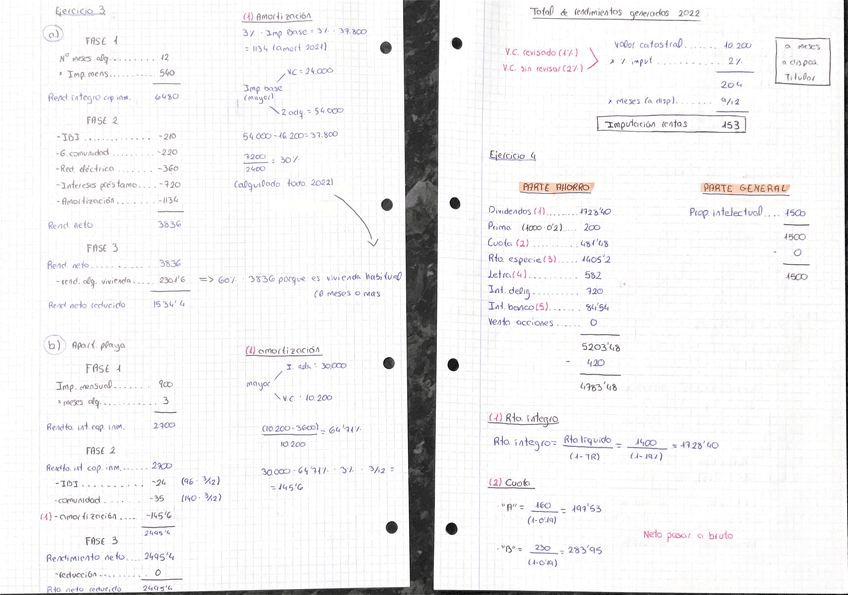 Ejercicio 3
a)
FASE 1
Nº meses alq. ........ 12
x Imp. mens. ........ 540
Rend. íntegro cap. inm. 6480
FASE 2
- IBI ............... -210
- G. comunidad ........ -220
- Red. eléctrica ....... -360
- Intereses préstamo ... -720
- Amortización ....... -1134
Rend neto 3836
FASE 3
Rend. neto .......... 3836
- rend. alq. vivienda .. 2301'6 => 60% · 3836 porque es vivienda habitual
(6 meses o más
Rend neto reducido 1534'4
(1) Amortización
3% · Imp. base = 3% · 37.800
= 1134 (amort 2021)
V.C = 24.000
Imp. base
(mayor)
2 adq. = 54.000
54.000 - 16.200 = 37.800
7200
2400
= 30%
(alquilado todo 2022)
b) Apart. playa
FASE 1
Imp. mensual ....... 900
x meses alq. ......... 3
Rendto. int cap. inm. 2700
FASE 2
Rendto. int cap. inm. .... 2700
- IBI ............ -24 (96 · 3/12)
- comunidad ....... -35 (140 · 3/12)
(1) - amortización .... -145'6
2495'4
FASE 3
Rendimiento neto .... 2495'4
- reducción ....... 0
Rto neto reducido 2495'4
(1) amortización
I. adq: 30.000
mayor
V.C: 10.200
(10.200 - 3600)
10.200
= 64'71%
30.000 · 64'71% · 3% · 3/12 =
= 145'6
Total de rendimientos generados 2022
V.C. revisado (1%)
V.C. sin revisar (2%)
Valor catastral ...... 10.200
x % imput ........ 2%
204
x meses (a disp) ..... 9/12
Imputación rentas 153
a meses
a dispos.
Titular
Ejercicio 4
PARTE AHORRO
Dividendos (1) ....... 1728'40
Prima (1000 · 0'2) .... 200
Cuota (2) ....... 481'48
Rto. especie (3) .... 1405'2
Letra (4) ......... 582
Int. delig. ....... 720
Int. banco (5) ...... 84'54
Venta acciones ..... 0
5203'48
- 420
4783'48
PARTE GENERAL
Prop. intelectual .... 1500
1500
- 0
1500
(1) Rto. íntegro
Rto. íntegro = Rto líquido / (1-TR) = 1400 / (1-19%) = 1728'40
(2) Cuota
· "A" = 160 / (1-0'19) = 197'53
Neto pasar a bruto
· "B" = 230 / (1-0'19) = 283'95